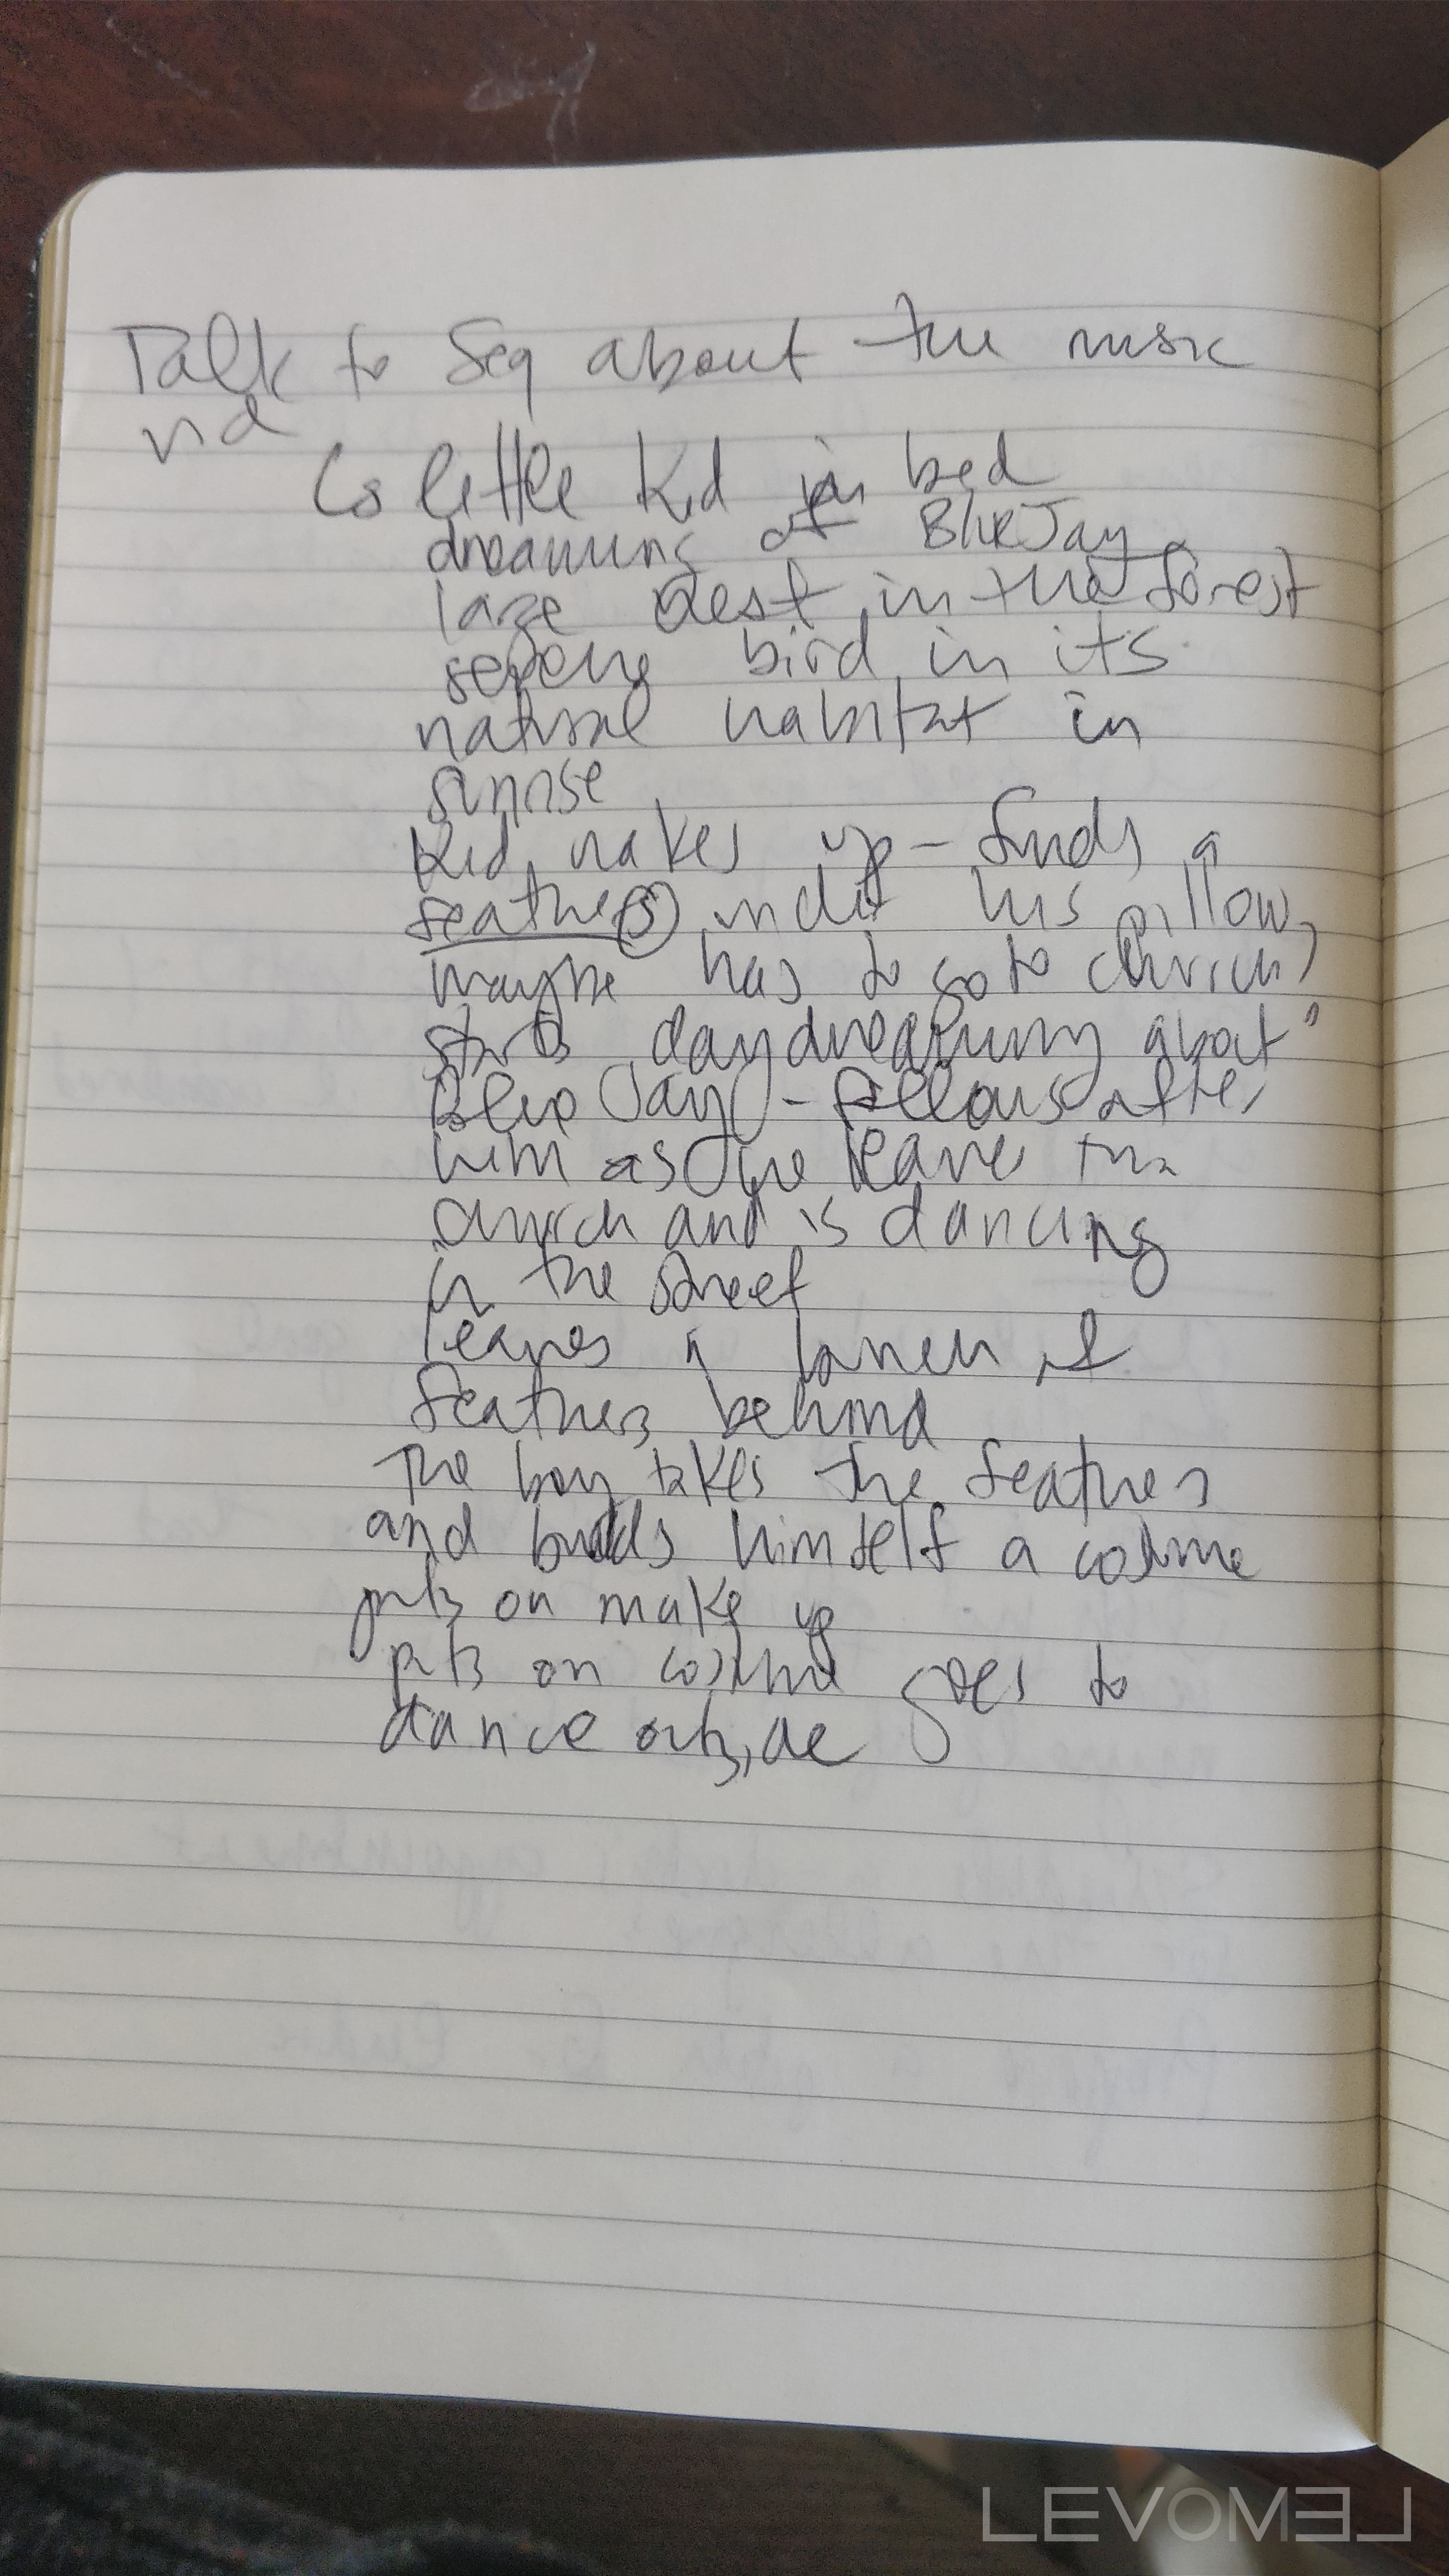 Talk to Seq about the music
vid
↳ little kid in bed
dreaming of Blue Jay
large nest in the forest
serene bird in its
natural habitat in
sunrise
Kid wakes up – finds a
feather(s) under his pillow,
maybe has to go to church,
starts daydreaming about
Blue Jay – follows after
him as he leaves the
church and is dancing
in the street
leaves a bunch of
feathers behind
The boy takes the feathers
and builds himself a costume
puts on make up
puts on costume goes to
dance outside
LEVOMEL